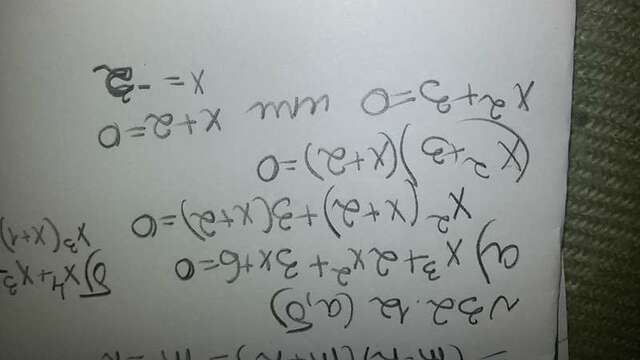 №32.12 (а,б)
а) x³+2x²+3x+6=0
x²(x+2)+3(x+2)=0
(x²+3)(x+2)=0
x²+3=0 или x+2=0
x=-2
б) x⁴+x³-
x³(x+1)